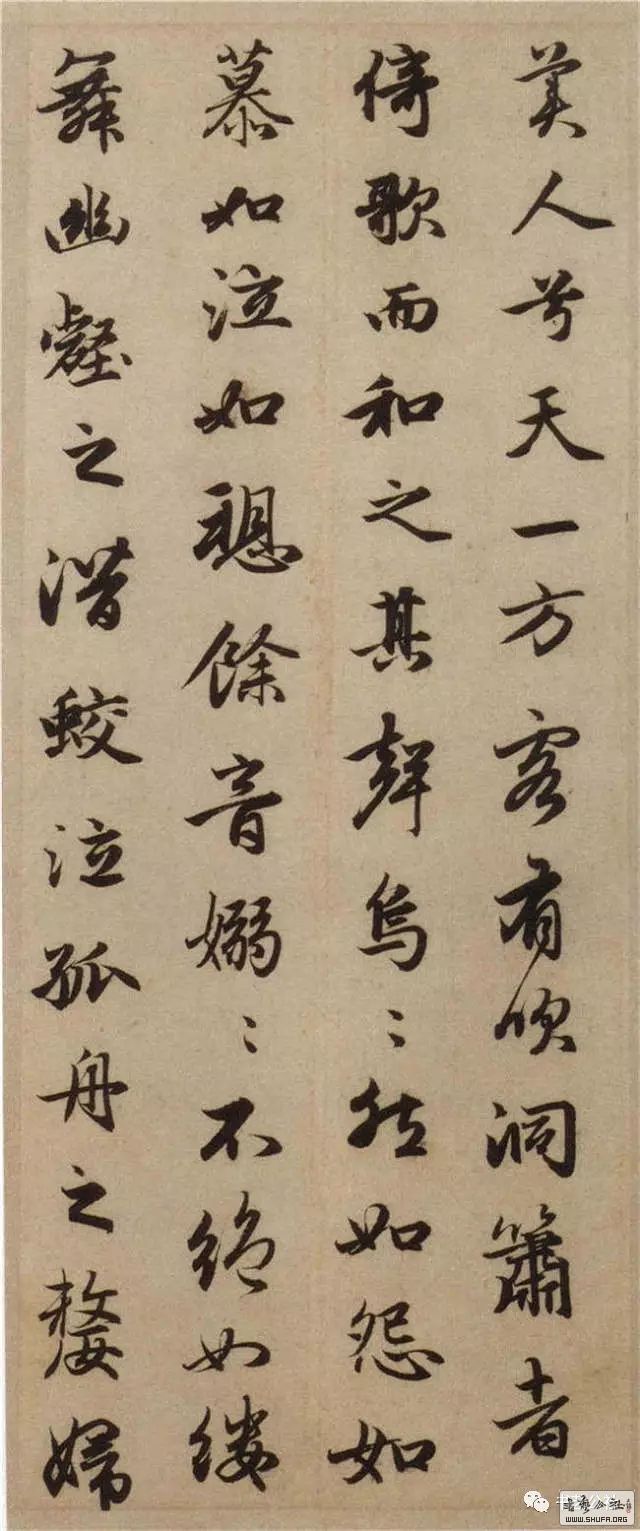 美人兮天一方客有吹洞簫者
倚歌而和之其聲烏〻然如怨如
慕如泣如愬餘音嫋〻不絕如縷
舞幽壑之潛蛟泣孤舟之嫠婦
WWW.SHUFA.ORG